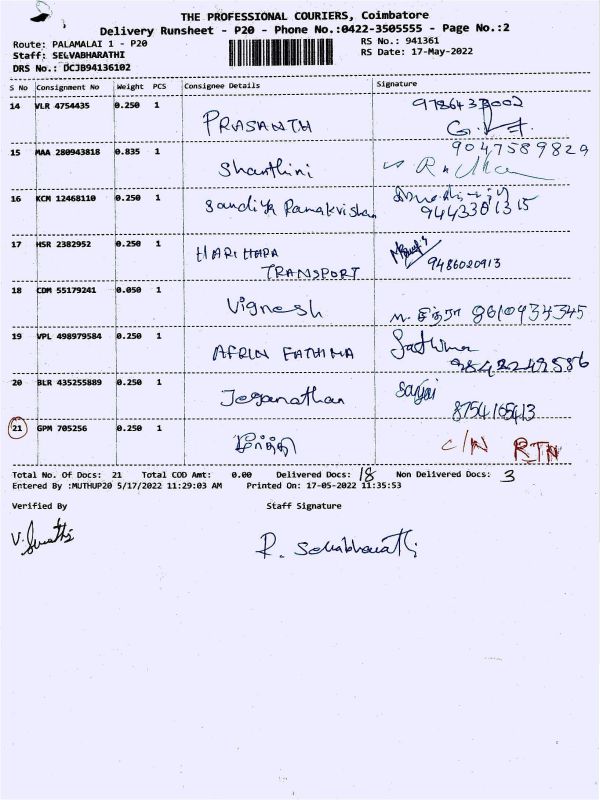 THE PROFESSIONAL COURIERS, Coimbatore
Delivery Runsheet - P20 - Phone No.:0422-3505555 - Page No.:2
Route: PALAMALAI 1 - P20
RS No.: 941361
Staff: SELVABHARATHI
RS Date: 17-May-2022
DRS No.: DCJB94136102
S No Consignment No Weight PCS Consignee Details Signature
14 VLR 4754435 0.250 1 PRASANTH
15 MAA 280943818 0.835 1 Shanthini 9047589829
16 KCM 12468110 0.250 1 Sandiya Ramakrishan 9443381315
17 HSR 2382952 0.250 1 HARI HARA
TRANSPORT 9486020913
18 CDM 55179241 0.050 1 Vignesh M. சித்ரா 8610934345
19 VPL 498979584 0.250 1 AFRIN FATHIMA Fathima
9842249586
20 BLR 435255889 0.250 1 Jeganathan Sanjai
8754165413
21 GPM 705256 0.250 1 C/N RTN
Total No. Of Docs: 21 Total COD Amt: 0.00 Delivered Docs: 18 Non Delivered Docs: 3
Entered By :MUTHUP20 5/17/2022 11:29:03 AM Printed On: 17-05-2022 11:35:53
Verified By Staff Signature
V. Swathi
R. Selvabharathi